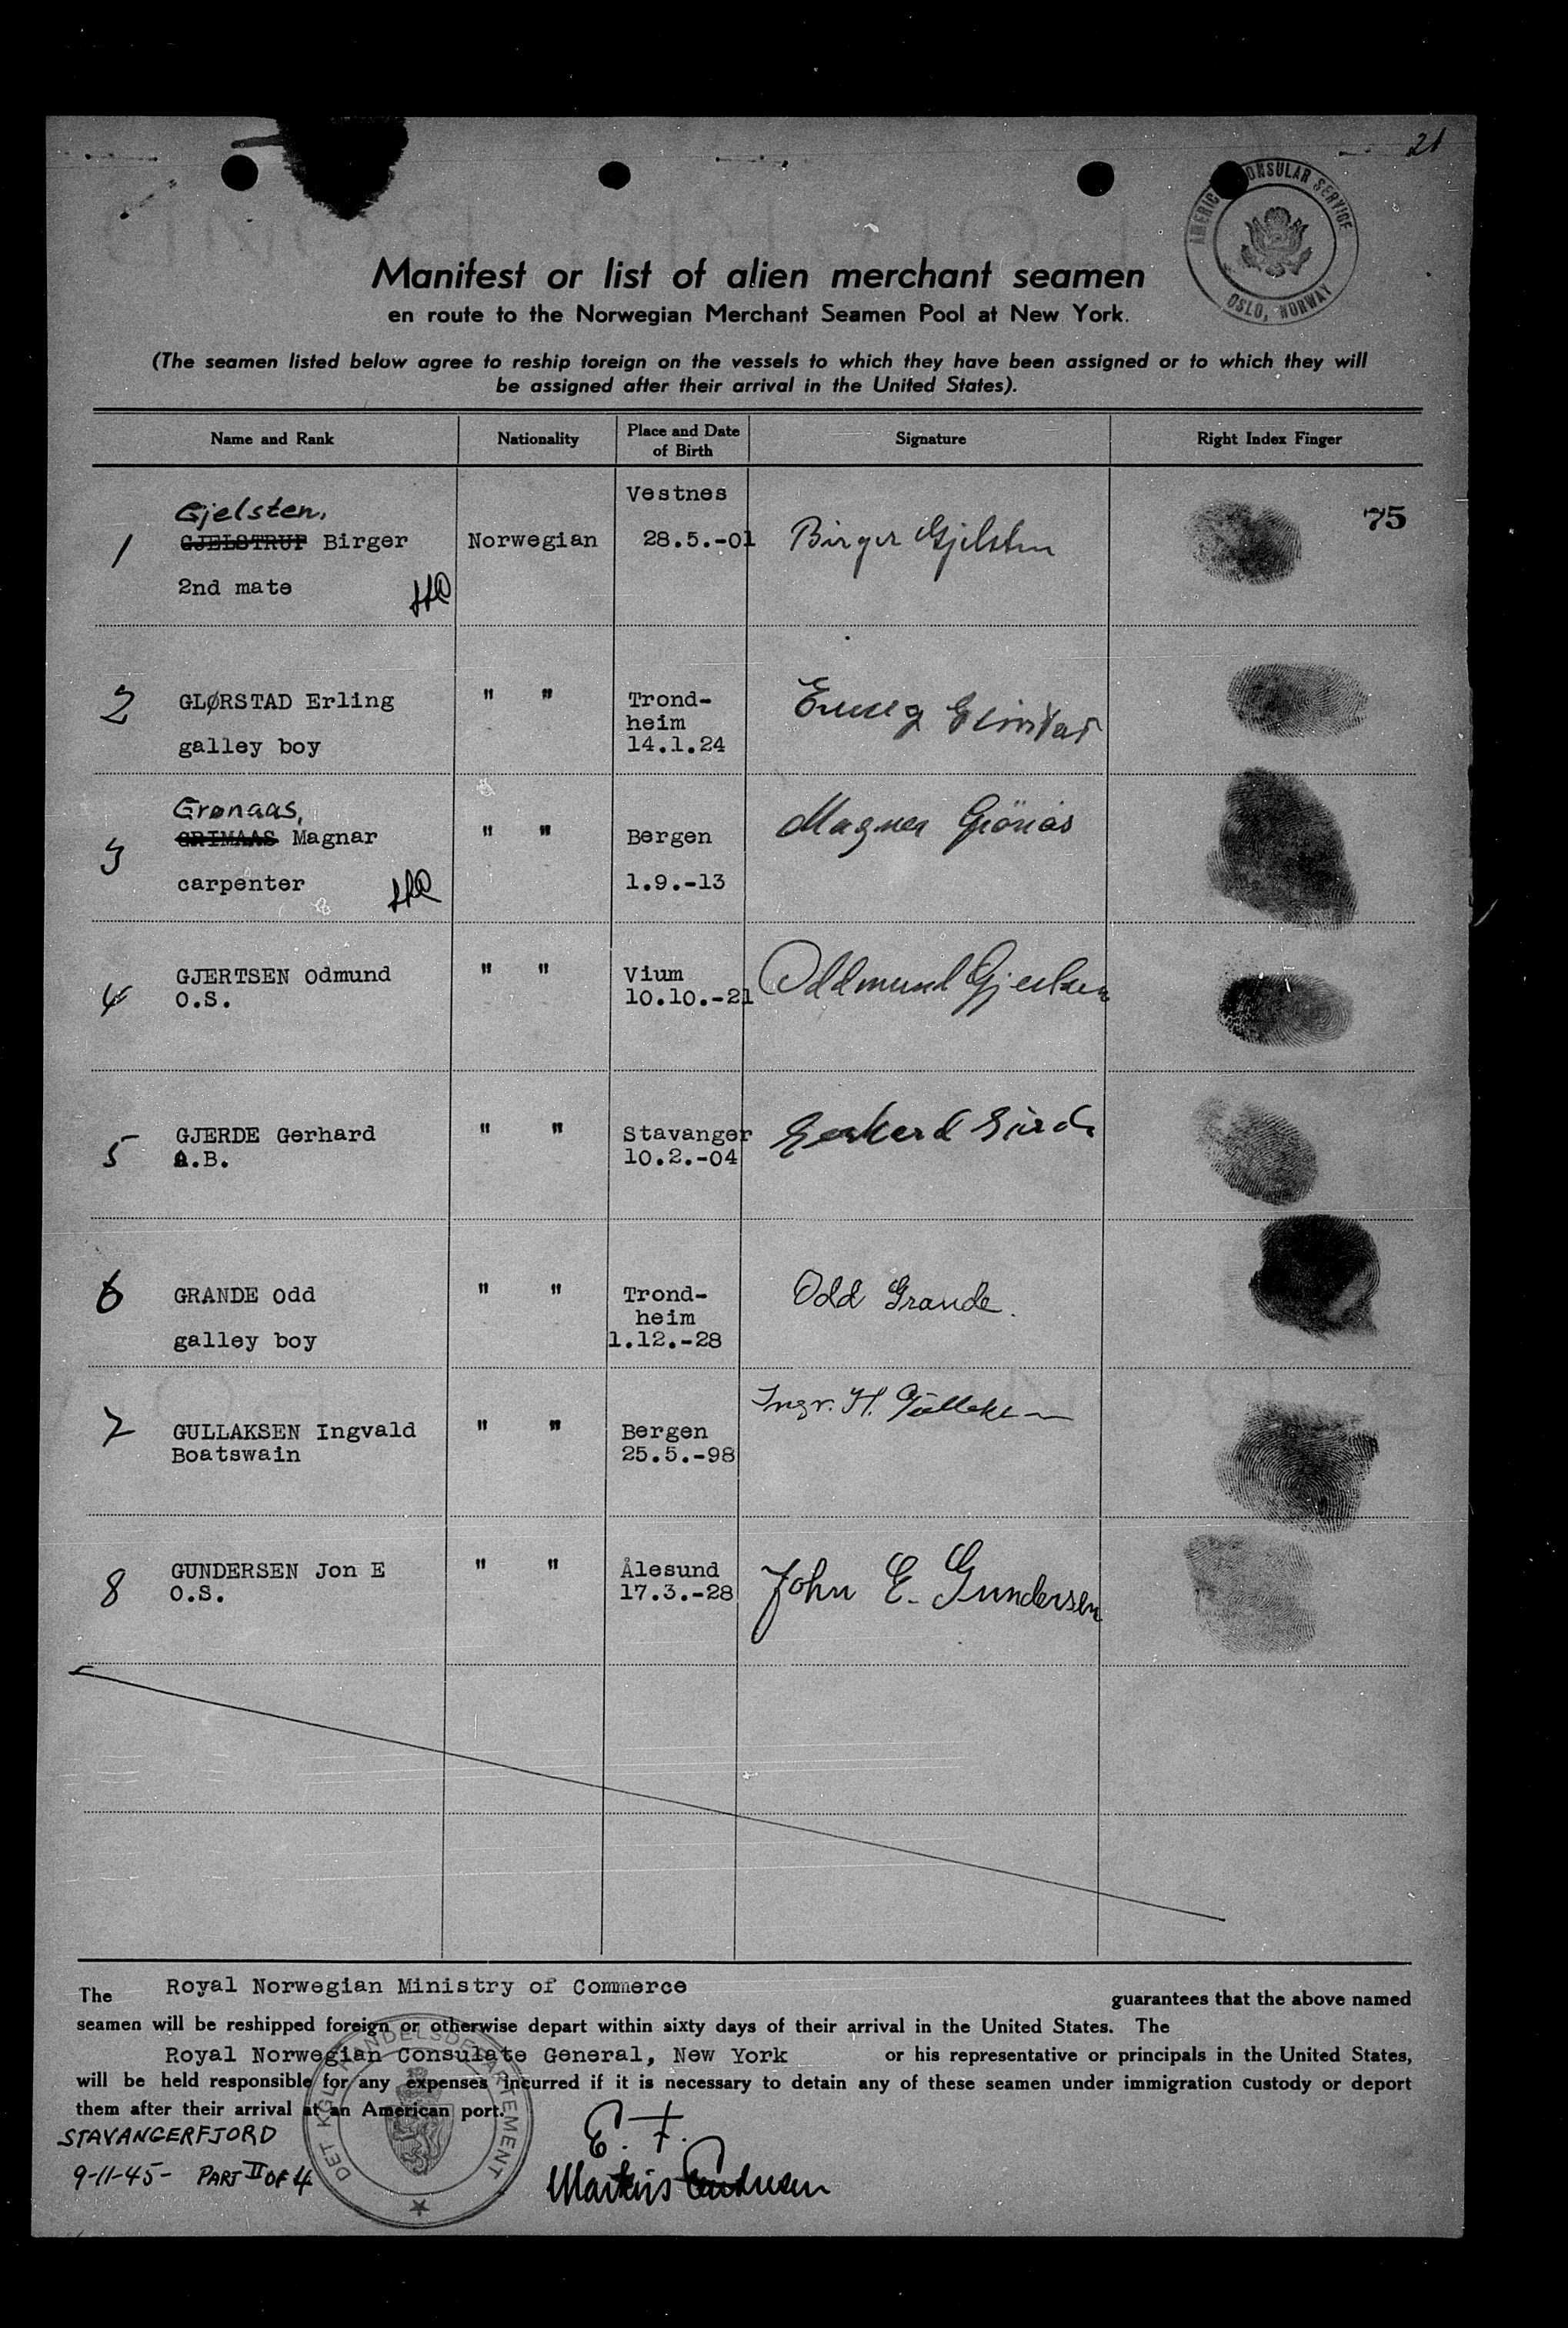 21
AMERICAN CONSULAR SERVICE
OSLO, NORWAY
Manifest or list of alien merchant seamen
en route to the Norwegian Merchant Seamen Pool at New York.
(The seamen listed below agree to reship foreign on the vessels to which they have been assigned or to which they will
be assigned after their arrival in the United States).
Name and Rank Nationality Place and Date of Birth Signature Right Index Finger
Vestnes
Gjelsten,
75
1 GJELSTRUP Birger Norwegian 28.5.-01 Birger Gjelsten
2nd mate
2 GLØRSTAD Erling " " Trond-
heim
galley boy 14.1.24
Grønaas,
3 GRIMAAS Magnar " " Bergen
carpenter 1.9.-13
4 GJERTSEN Odmund " " Vium Oddmund Gjertsen
O.S. 10.10.-21
5 GJERDE Gerhard " " Stavanger Gerhard
A.B. 10.2.-04
6 GRANDE Odd " " Trond- Odd Grande.
heim
galley boy 1.12.-28
7 GULLAKSEN Ingvald " " Bergen Ingv. H.
Boatswain 25.5.-98
8 GUNDERSEN Jon E " " Ålesund John E. Gundersen
O.S. 17.3.-28
The Royal Norwegian Ministry of Commerce guarantees that the above named
seamen will be reshipped foreign or otherwise depart within sixty days of their arrival in the United States. The
Royal Norwegian Consulate General, New York or his representative or principals in the United States,
will be held responsible for any expenses incurred if it is necessary to detain any of these seamen under immigration custody or deport
them after their arrival at an American port.
DET KGL. HANDELSDEPARTEMENT
E. F.
STAVANGERFJORD
9-11-45- PART II OF 4